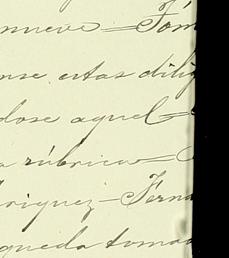 nueve = Tom
nse estas dilig
dose aquel =
a rúbrica = C
riquez - Ferna
queda tomad